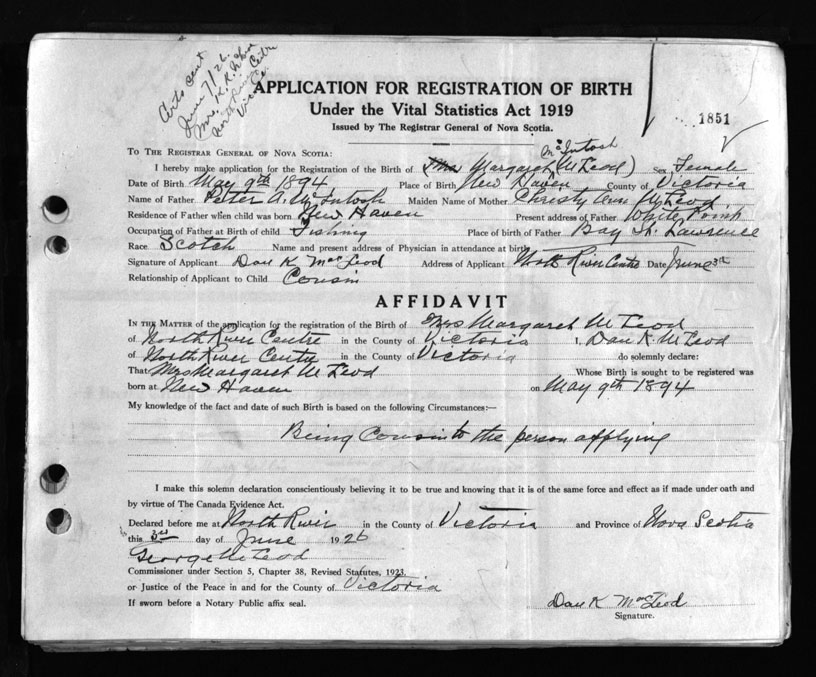 Certs sent
June 7/26.
Mrs. K.R. McLeod
North River Centre
Vic. Co.
APPLICATION FOR REGISTRATION OF BIRTH
Under the Vital Statistics Act 1919
Issued by The Registrar General of Nova Scotia.
1851
TO THE REGISTRAR GENERAL OF NOVA SCOTIA:
McIntosh
I hereby make application for the Registration of the Birth of Mrs Margaret (McLeod) Sex Female
Date of Birth May 9th 1894 Place of Birth New Haven County of Victoria
Name of Father Peter A. McIntosh Maiden Name of Mother Christy Ann McLeod
Residence of Father when child was born New Haven Present address of Father White Point
Occupation of Father at Birth of child Fishing Place of birth of Father Bay St. Lawrence
Race Scotch Name and present address of Physician in attendance at birth
Signature of Applicant Dan K MacLeod Address of Applicant North River Centre Date June 3rd
Relationship of Applicant to Child Cousin
AFFIDAVIT
IN THE MATTER of the application for the registration of the Birth of Mrs Margaret McLeod
of North River Centre in the County of Victoria I, Dan K. McLeod
of North River Centre in the County of Victoria do solemnly declare:
That Mrs Margaret McLeod Whose Birth is sought to be registered was
born at New Haven on May 9th 1894
My knowledge of the fact and date of such Birth is based on the following Circumstances:—
Being Cousin to the person applying
I make this solemn declaration conscientiously believing it to be true and knowing that it is of the same force and effect as if made under oath and
by virtue of The Canada Evidence Act.
Declared before me at North River in the County of Victoria and Province of Nova Scotia
this 3rd day of June 1926
George McLeod
Commissioner under Section 5, Chapter 38, Revised Statutes, 1923,
or Justice of the Peace in and for the County of Victoria
If sworn before a Notary Public affix seal.
Dan K MacLeod
Signature.